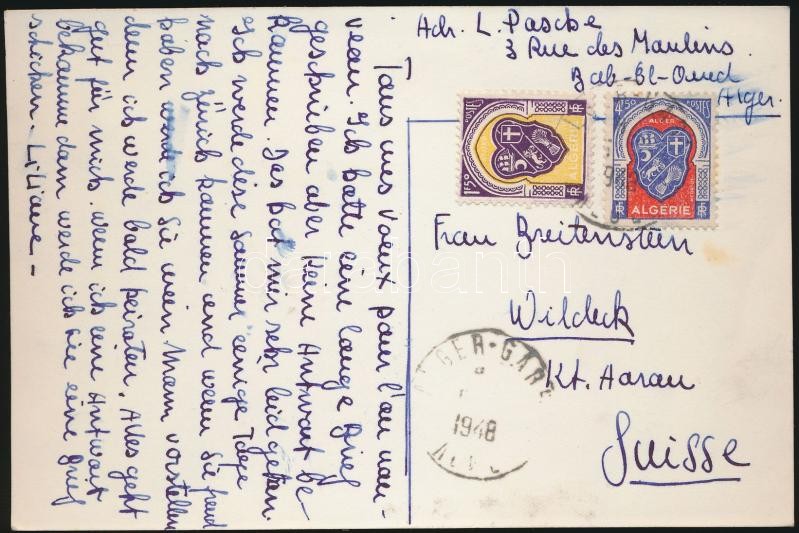 Tous mes voeux pour l'an nou-
veau. Ich hatte eine lange Brief
geschrieben aber keine Antwort be-
kommen. Das hat mir sehr leid getan.
Ich werde diese Sommer einige Tage
nach Zürich kommen und wenn Sie freud
haben werde ich Sie mein Mann vorstellen
denn ich werde bald heiraten. Alles geht
gut für mich. wenn ich eine Antwort
bekomme dann werde ich Sie eine Brief
schicken - Liliane -
Adr. L. Pasche
3 Rue des Moulins
Bab-El-Oued
Alger.
1F50
RF
ALGERIE
4F50
POSTES
ALGER
RF
ALGERIE
Frau Breitenstein
Wildeck
Kt. Aarau
Suisse
ALGER-GARE
1948
ALGER
darabanth